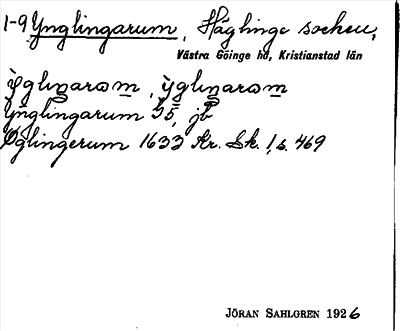 1-9 Ynglingarum, Häglinge socken,
Västra Göinge hd, Kristianstad län
Ynglingarum 55, jb
Öglingerum 1633 Kr. Sk. 1, s. 469
JÖRAN SAHLGREN 1926